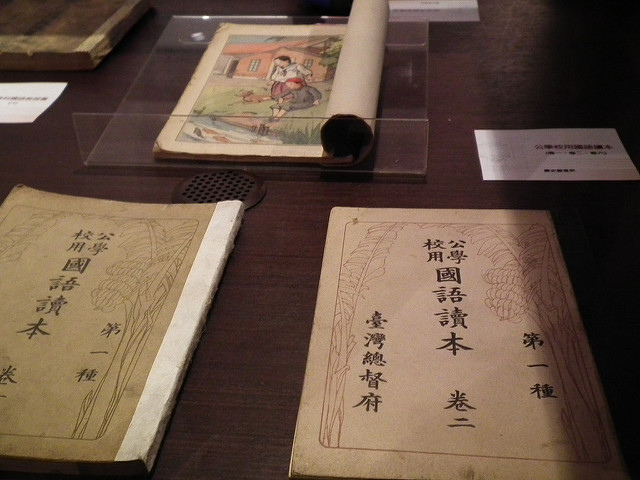 公學校用國語讀本
(卷一、卷二、卷六)
公學
校用
國語讀本
第一種
卷
公學
校用
國語讀本 卷二
第一種
臺灣總督府